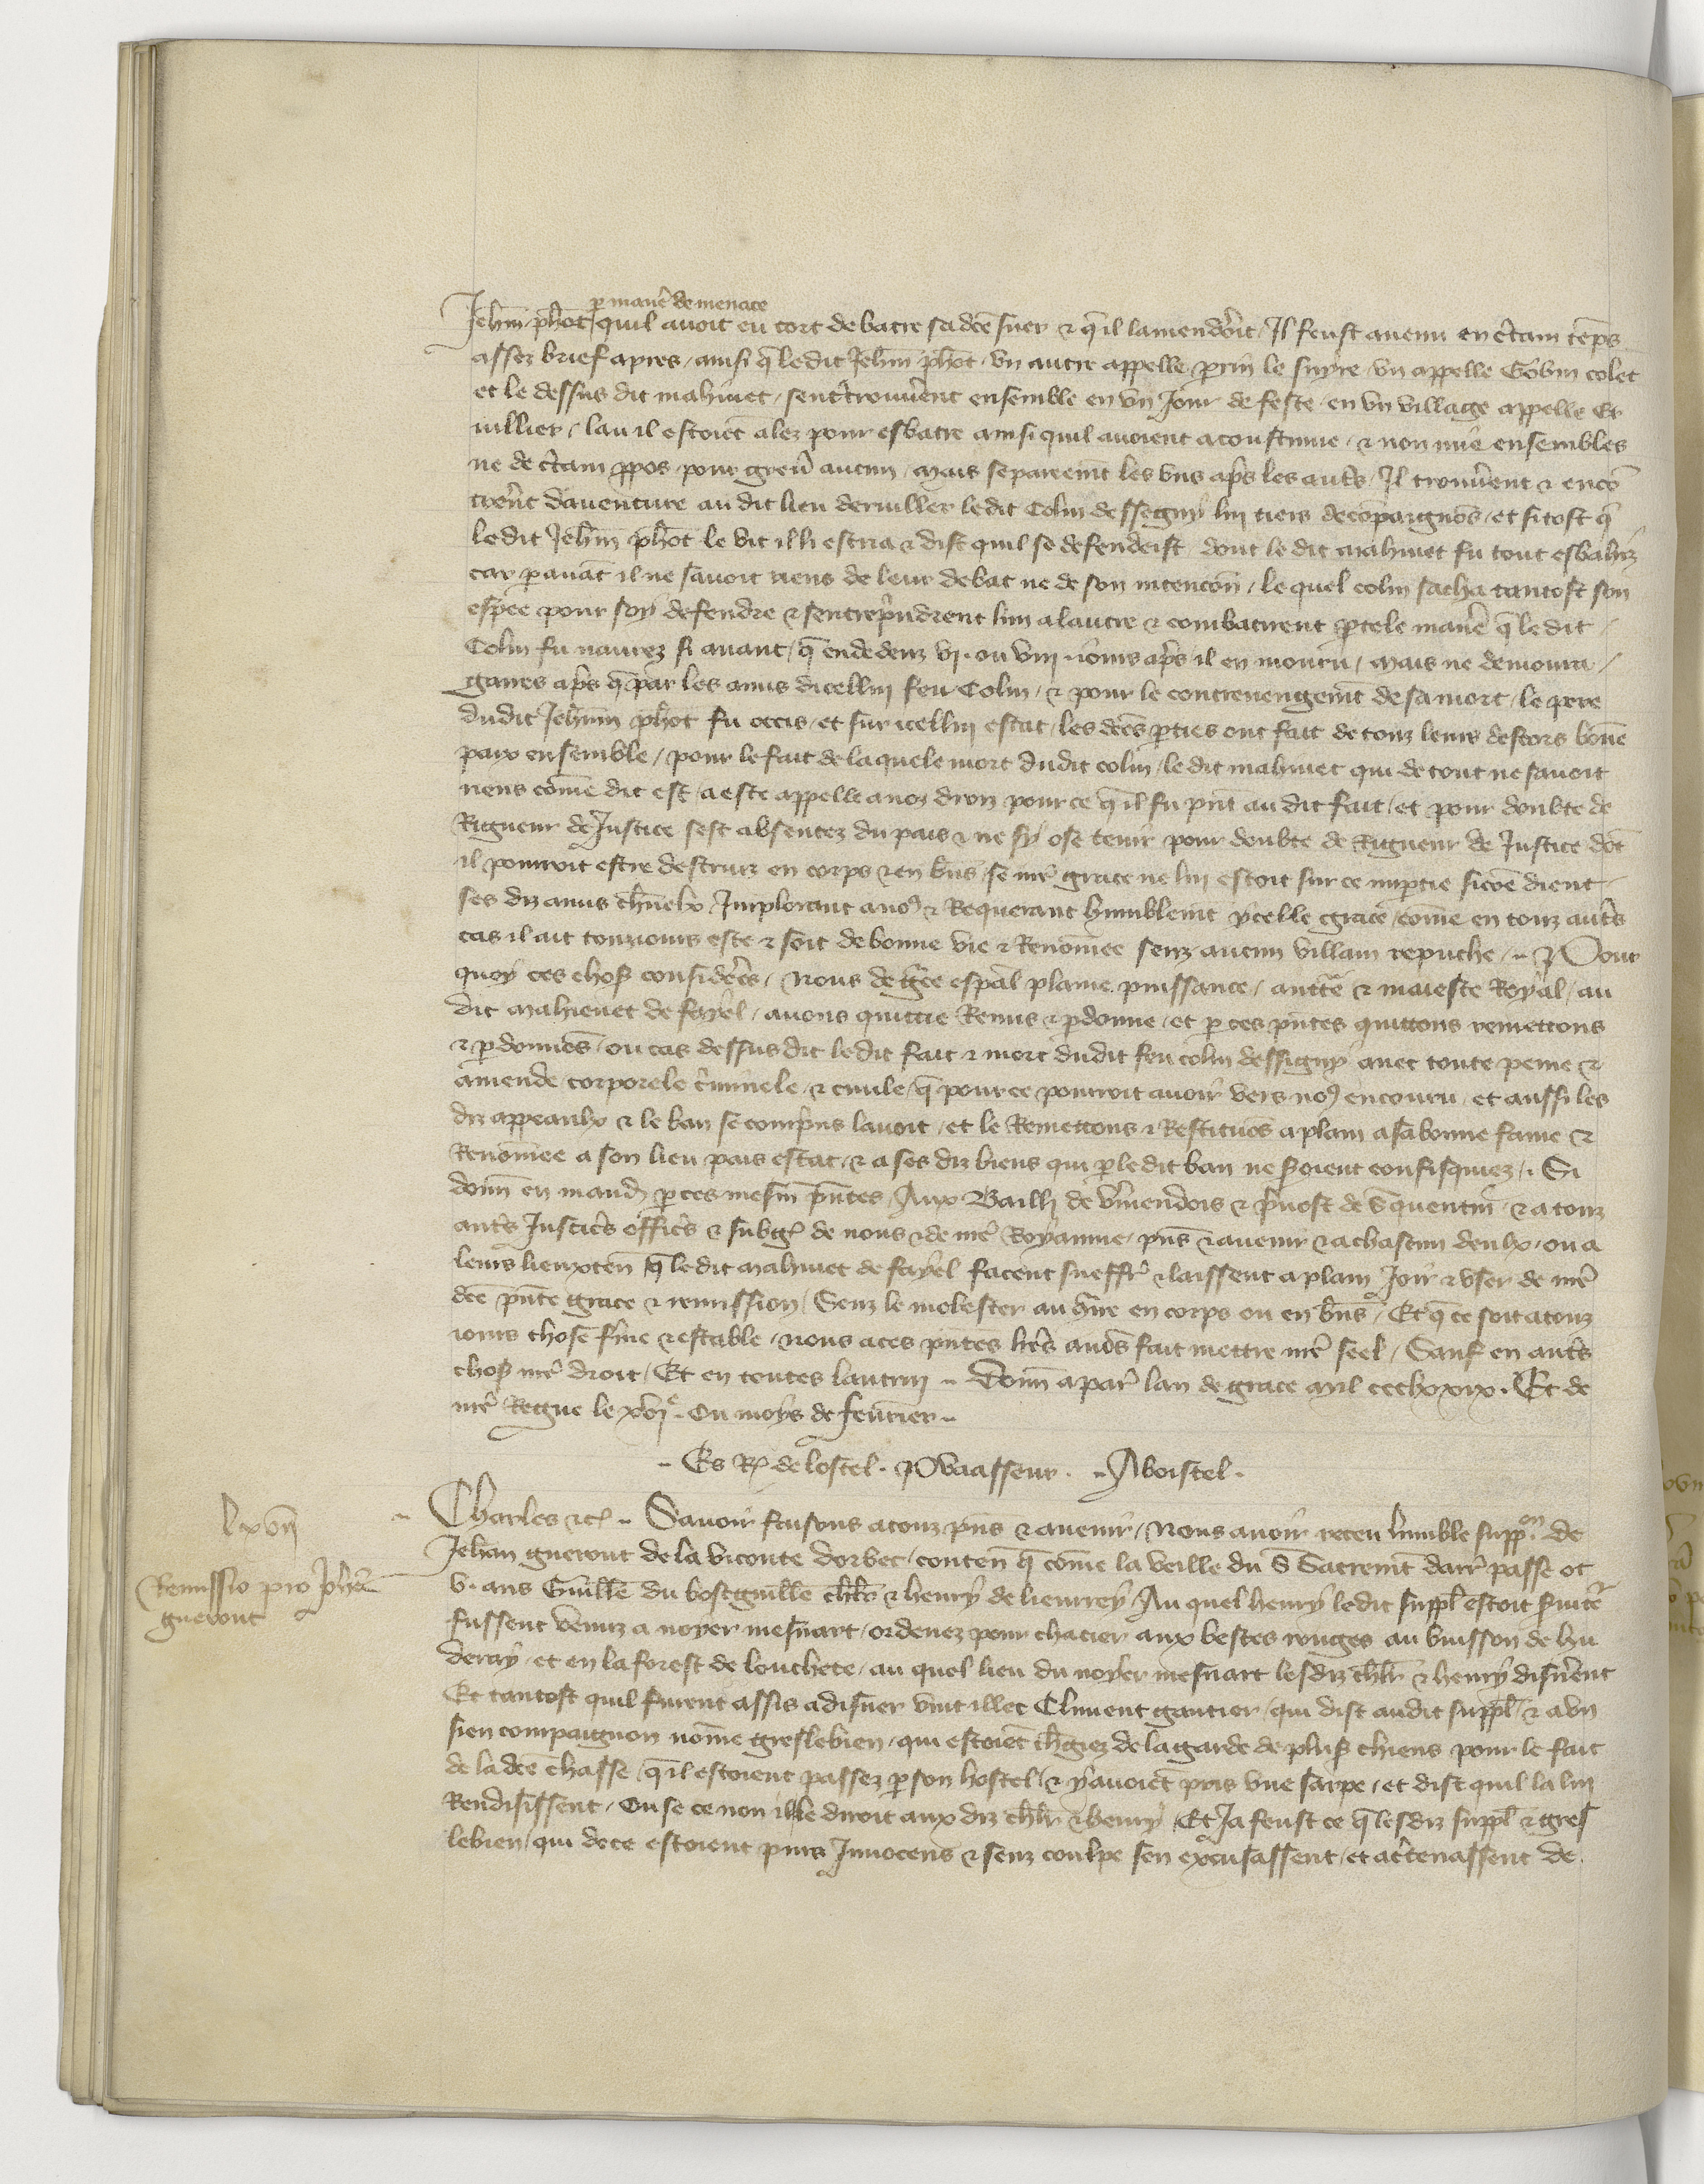 p maniẽ de menace
Jehan phot quil avoit eu tort de batre sa dce suer & q̃ il lamendroit / Il feust avenu en ctain temps
assez brief apres / ainsi q̃ ledit Jehan phot / un autre appelle prin le suyre / un appelle Gobin colet
et le dessus dit mahinet / sentrouvèrent ensemble en un Jour de feste / en un village appelle Er
villier / lau il estoiẽt alez pour esbatre ainsi quil avoient acoustume / & non mie ensembles
ne de ctain ppos pour grever aucun / mais separeemt les uns aps les auts / Il trouverent & encõ
trerẽt daventure au dit lieu dervillier ledit Colin dessegny lui tiers de cõpaignõs / et si tost q̃
ledit Jehan phot le vit il li escria & dist quil se defendeist / dont le dit mahinet fu tout esbahiz
car pavãt il ne savoit riens de leur debat ne de son intencõn / le quel colin sacha tantost son
espee pour soy defendre & sentreprindrent lun alautre & combatirent p tele maniẽ q̃ ledit
Colin fu navrez si avant / q̃ en dedenz vj. ou viij. iours aps il en mouru / mais ne demoura
gaires aps q̃ par les amis dicellui feu Colin / & pour le contrevengemt de sa mort / le pere
dudit Jehan phot fu occis / et sur icellui estat / les dces pties ont fait de touz leurs descors bone
paix ensemble / pour le fait de laquele mort dudit colin / ledit mahinet qui de tout ne savoit
riens cõme dit est / a este appelle a noz droiz pour ce q̃ il fu pnt au dit fait / et pour doubte de
Rigueur de Justice sest absentez du pais & ne sy ose tenir pour doubte de Rigueur de Justice dõt
il pourroit estre destruiz en corps & en biens / se nr̃e grace ne lui estoit sur ce impartie sicõe dient
ses diz amis charnelx / Implorant a nous & Requerant humblemt ycelle grace / cõme en touz auts
cas il ait touzjours este & soit de bonne vie & Renõmee senz aucun villain repruche /.. Pour
quoy ces choses consideres / Nous de gce espal plaine puissance / auttẽ & maieste Royal / au
dit mahienet de fayel / avons quittie Remis & pdonne / et p ces pntes quittons remettons
& pdonnõs / ou cas dessus dit ledit fait & mort dudit feu colin dessigny avec toute peine &
amende corporele criminele & civile / q̃ pour ce pourroit avoir vers nous encouru / et aussi les
diz appeaulx & le ban se compris lavoit / et le Remettons & Restituõs a plain a sa bonne fame &
Renõmee a son lieu pais estat / & a ses diz biens qui p ledit ban ne seroient confisquiez /. Si
donñ en mandemt p ces mesm̃ pntes / Aux Bailli de vmendois & prevost de s quentin / & a touz
auts Justicrs officrs & subgez de nous & de nr̃e Royaume / pns & avenir & a chascun deulx / ou a
leurs lieuxten̄ q̃ ledit mahinet de fayel facent sueffr̃ & laissent a plain Joir & user de nr̃e
dce pnte grace & remission / Senz le molester au contraire en corps ou en biens / Et q̃ ce soit a touz
iours chose ferme & estable / nous a ces pntes lrẽs avõs fait mettre nr̃e seel / Sauf en auts
choses nr̃e droit / Et en toutes lautrui .. Donñ a par̃ lan de grace mil ccclxxix . Et de
nr̃e Regne le xvj.e Ou moys de fevrier ..
.. Es R de lostel . P Vaasseur . .. A boistel .
lxvij
Remissio pro Johẽ
gueront
Charles &c̃ .. Savoir faisons a touz pns & avenir / Nous avoir receu humble supp.on de
Jehan gueront de la viconte dorbec / conten̄ q̃ cõme la veille du S Sacremt darr̃ passe ot
v. ans Guille du boscguille chlr & henry de lieurey / Au quel henry ledit suppl̃ estoit Suitẽ
fussent venuz a noyer mesnart / ordenez pour chacier aux bestes rouges au buisson de hu
deray / et en la forest de louchete / au quel lieu du noyer mesnart lesdiz chlr & henry disnèrent
Et tantost quil furent assis a disner vint illec Climent gautier / qui dist audit suppl̃ & a un
sien compaignon nõme greslebien / qui estoiẽt chargiez de la garde de plus chiens pour le fait
de la dce chasse / q̃ il estoient passez p son hostel / & y avoiẽt pris une sarpe / et dist quil la lui
Rendisissent / Ou se ce non il le diroit aux diz chlr & henry / Et Ja feust ce q̃ lesdiz suppl̃ & gres
lebien / qui de ce estoient purs Innocens & senz coulpe sen excusassent / et actenassent de